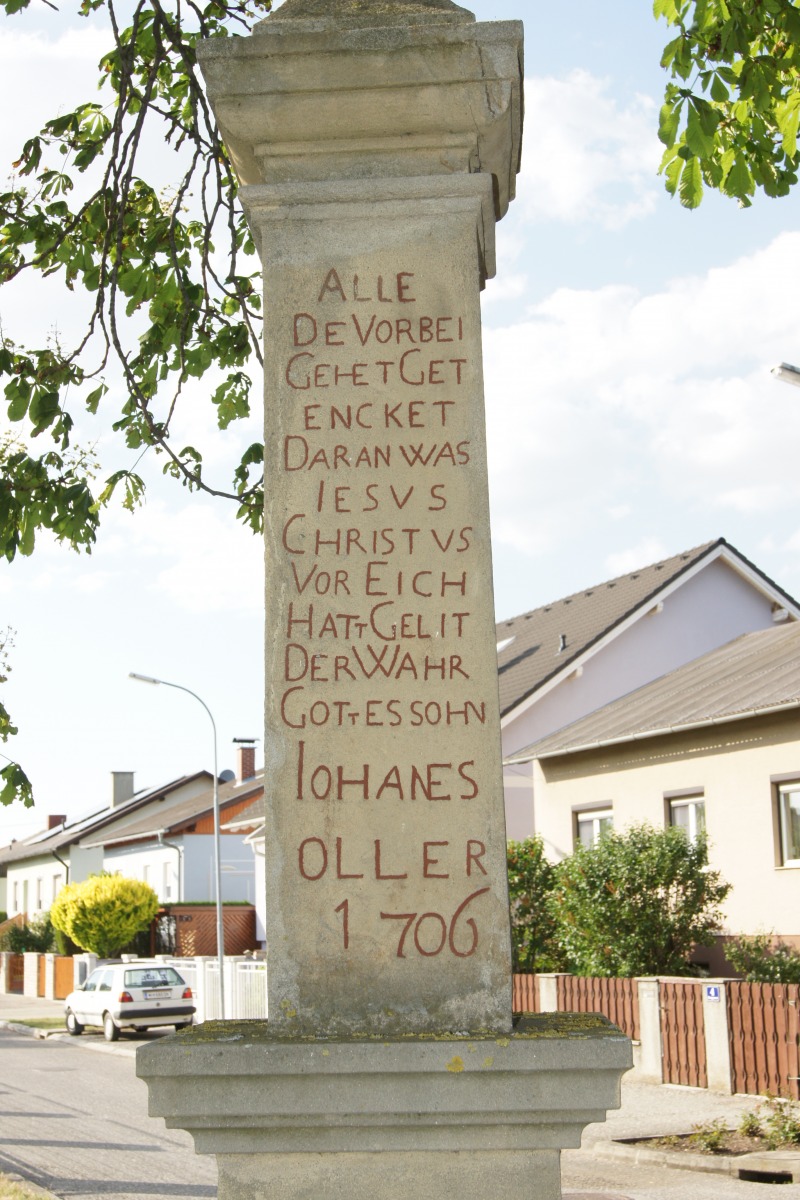 ALLE
DEVORBEI
GEHETGET
ENCKET
DARANWAS
IESVS
CHRISTVS
VOR EICH
HATTGELIT
DERWAHR
GOTTESSOHN
IOHANES
OLLER
1706
4